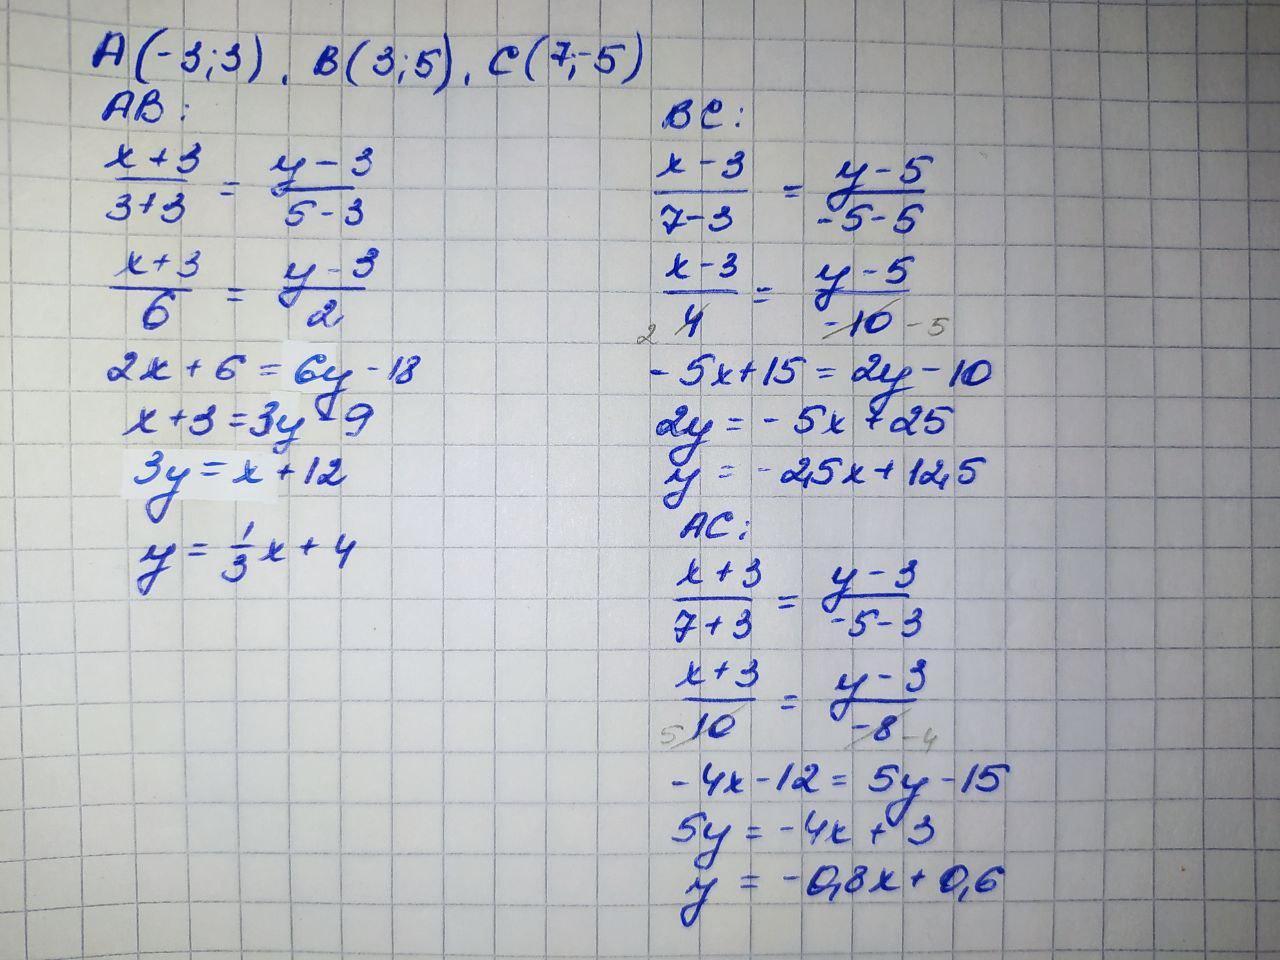 A(-3;3), B(3;5), C(7;-5)
AB:
x+3/3+3 = y-3/5-3
x+3/6 = y-3/2
2x+6=6y-18
x+3=3y-9
3y=x+12
y=1/3x+4
BC:
x-3/7-3 = y-5/-5-5
x-3/4 2 = y-5/-10 -5
-5x+15=2y-10
2y=-5x+25
y=-2,5x+12,5
AC:
x+3/7+3 = y-3/-5-3
x+3/10 5 = y-3/-8 -4
-4x-12=5y-15
5y=-4x+3
y=-0,8x+0,6